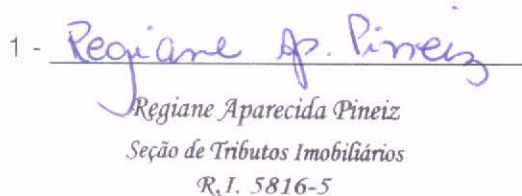 1 - Regiane Ap. Pineiz
Regiane Aparecida Pineiz
Seção de Tributos Imobiliários
R.I. 5816-5